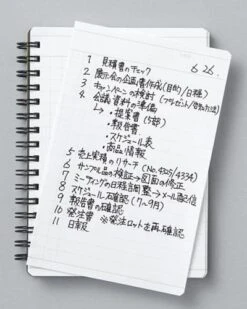 6 26.
1 見積書のチェック
2 展示会の企画書作成(目的/日程)
3 キャンペーンの検討(プレゼント/告知方法)
4 会議資料の準備
↳・提案書(5部)
・報告書
・スケジュール表
・商品情報
5 売上実績のリサーチ(No.4325/4334)
6 サンプル品の検証→図面の修正
7 ミーティングの日程調整→メール配信
8 スケジュール確認(7〜9月)
9 報告書の確認
10 発注書 ※発注ロットを再確認
11 日報